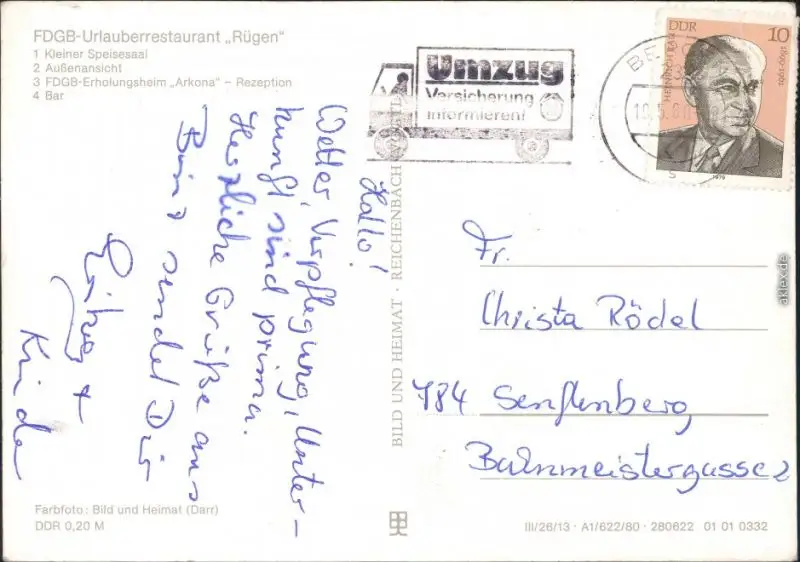 FDGB-Urlauberrestaurant „Rügen“
1 Kleiner Speisesaal
2 Außenansicht
3 FDGB-Erholungsheim „Arkona“ – Rezeption
4 Bar
Hallo!
Wetter, Verpflegung, Unter-
kunft sind prima.
Herzliche Grüße aus
Binz sendet Dir
+
Kinder
Farbfoto: Bild und Heimat (Darr)
DDR 0,20 M
BILD UND HEIMAT · REICHENBACH
Umzug
Versicherung
informieren!
DDR
10
1979
Fr.
Christa Rödel
784 Senftenberg
Bahnmeistergasse 2
III/26/13 · A1/622/80 · 280622 01 01 0332
aklex.de